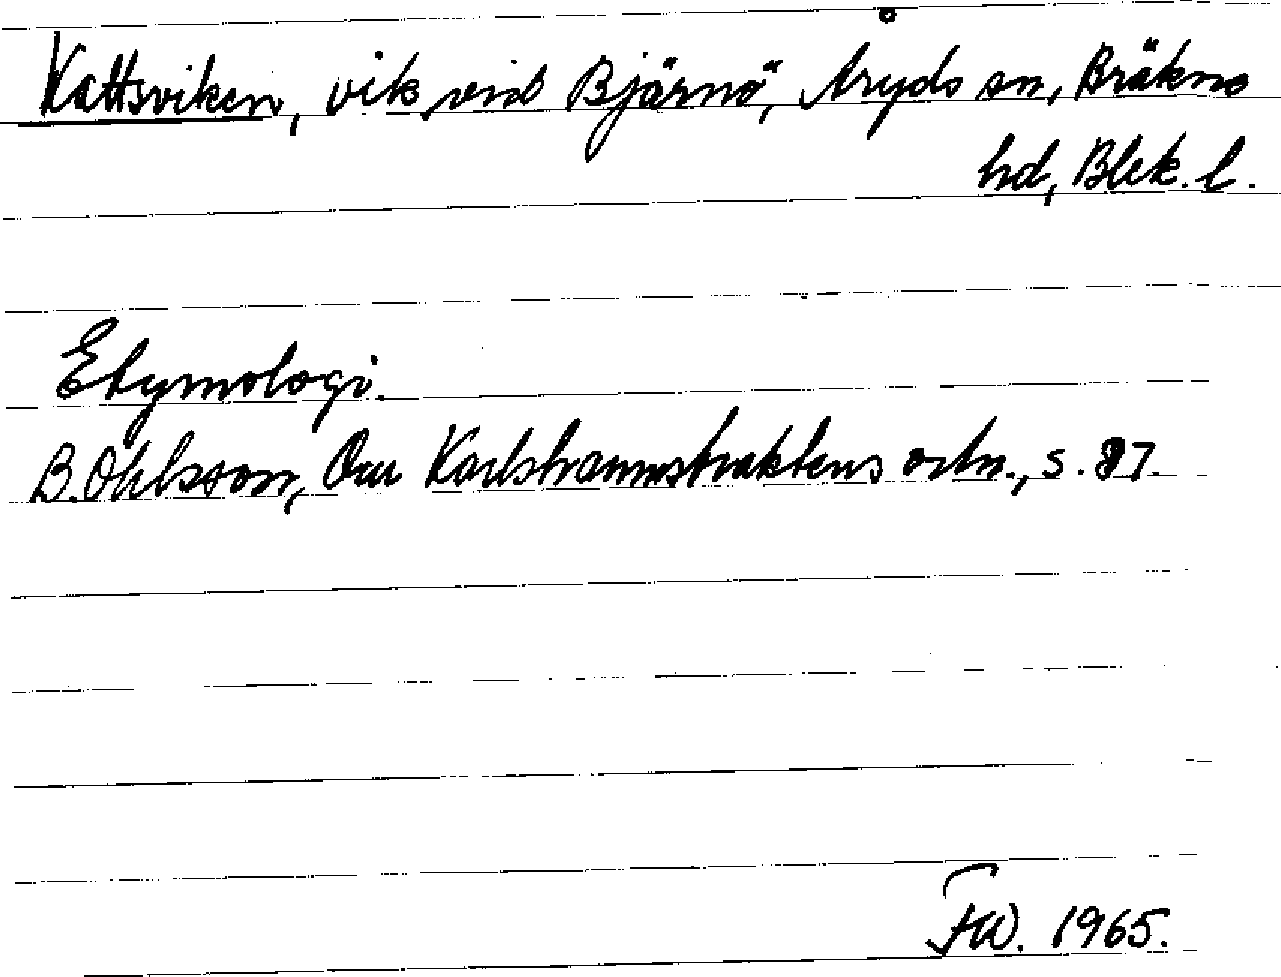 Kattsviken, vik vid Björnö, Åryds sn, Bräkne
hd, Blek. l.
Etymologi.
B. Ohlsson, Om Karlshamnstraktens ortn., s. 87.
FW. 1965.